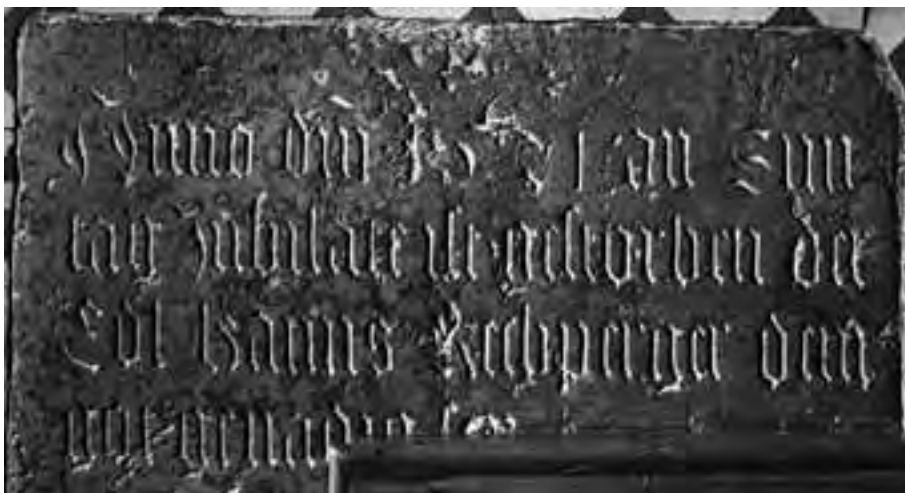 Anno dm an Sun
tag Jubilate ist gestorben der
Edl Hanns Rechperger dem
got genadig sey